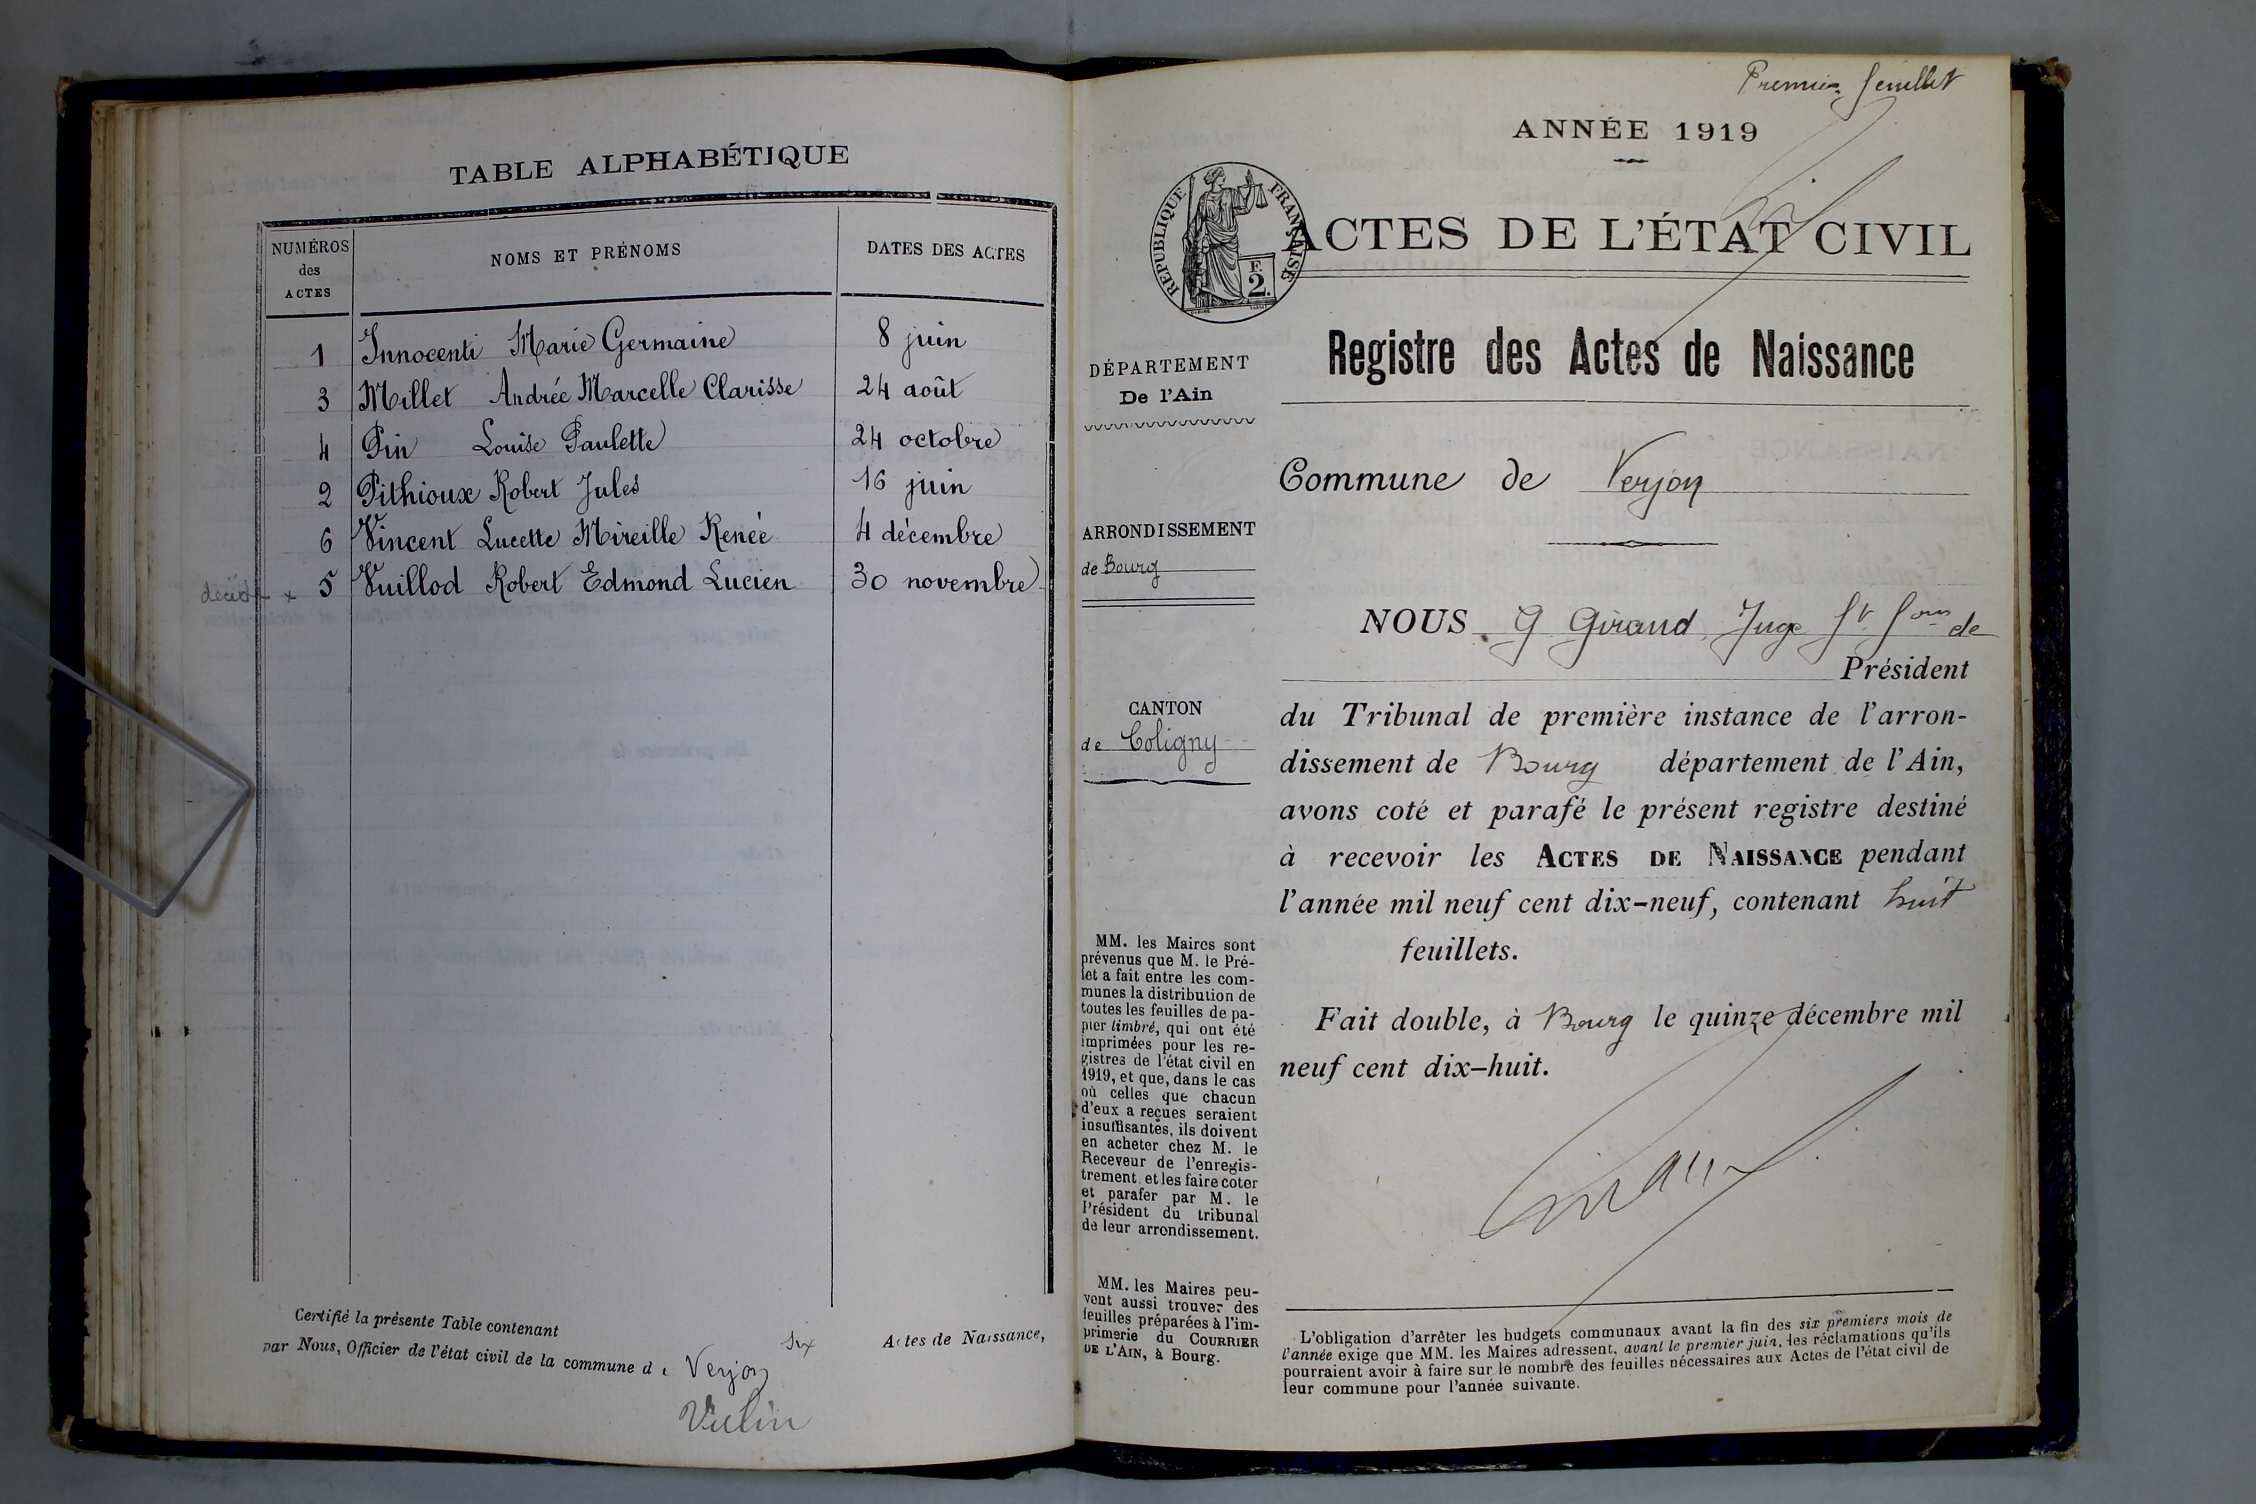 TABLE ALPHABÉTIQUE
NUMÉROS des ACTES
NOMS ET PRÉNOMS
DATES DES ACTES
1 Innocenti Marie Germaine 8 juin
3 Millet Andrée Marcelle Clarisse 24 août
4 Pin Louise Paulette 24 octobre
2 Pithioux Robert Jules 16 juin
6 Vincent Lucette Mireille Renée 4 décembre
x 5 Vuillod Robert Edmond Lucien 30 novembre
Certifié la présente Table contenant six Actes de Naissance,
par Nous, Officier de l'état civil de la commune d e Verjon
Vulin
Premier feuillet
ANNÉE 1919
RÉPUBLIQUE FRANÇAISE
F.
2.
ACTES DE L'ÉTAT CIVIL
Registre des Actes de Naissance
DÉPARTEMENT
De l'Ain
Commune de Verjon
ARRONDISSEMENT
de Bourg
NOUS G Giraud Juge de
Président
CANTON
de Coligny
du Tribunal de première instance de l'arron-
dissement de Bourg département de l'Ain,
avons coté et parafé le présent registre destiné
à recevoir les ACTES DE NAISSANCE pendant
l'année mil neuf cent dix-neuf, contenant huit
feuillets.
Fait double, à Bourg le quinze décembre mil
neuf cent dix-huit.
Giraud
MM. les Maires sont
prévenus que M. le Pré-
fet a fait entre les com-
munes la distribution de
toutes les feuilles de pa-
pier timbré, qui ont été
imprimées pour les re-
gistres de l'état civil en
1919, et que, dans le cas
où celles que chacun
d'eux a reçues seraient
insuffisantes, ils doivent
en acheter chez M. le
Receveur de l'enregis-
trement et les faire coter
et parafer par M. le
Président du tribunal
de leur arrondissement.
MM. les Maires peu-
vent aussi trouver des
feuilles préparées à l'im-
primerie du COURRIER
DE L'AIN, à Bourg.
L'obligation d'arrêter les budgets communaux avant la fin des six premiers mois de
l'année exige que MM. les Maires adressent, avant le premier juin, les réclamations qu'ils
pourraient avoir à faire sur le nombre des feuilles nécessaires aux Actes de l'état civil de
leur commune pour l'année suivante.